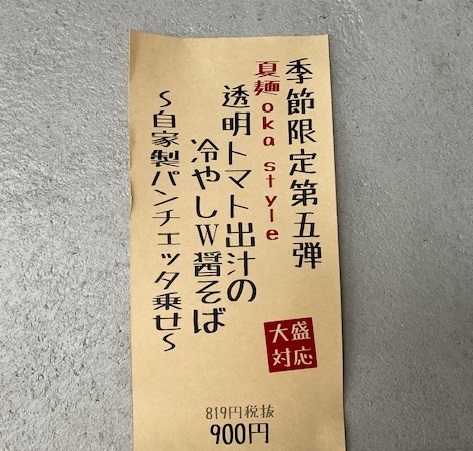 季節限定第五弾
夏麺oka style
透明トマト出汁の
冷やしW醤そば
～自家製パンチェッタ乗せ～
大盛
対応
819円税抜
900円